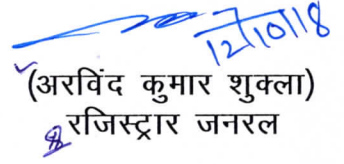 12/10/18
(अरविंद कुमार शुक्ला)
रजिस्ट्रार जनरल